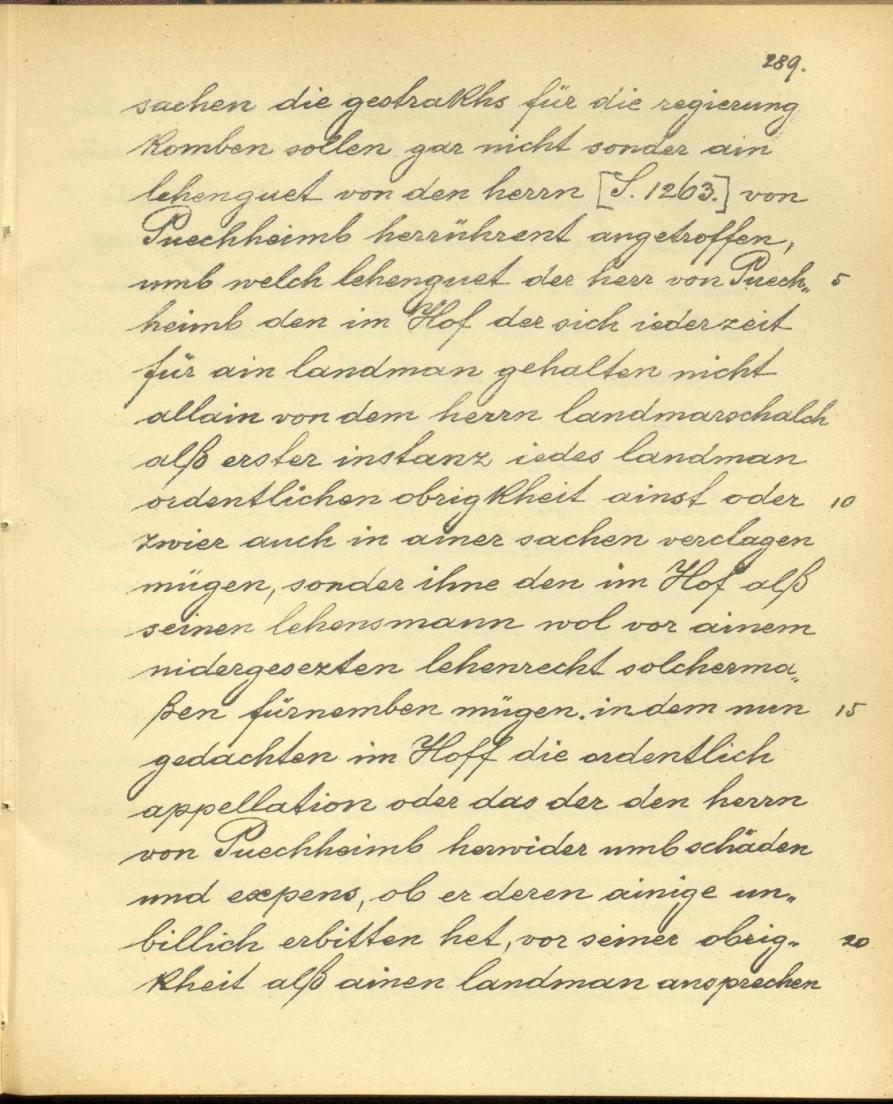 289.
sachen die gestrakhs für die regierung
komben sollen gar nicht sonder ain
lehenguet von den herrn [S. 1263.] von
Puechheimb herrührent angetroffen,
umb welch lehenguet der herr von Puech„ 5
heimb den im Hof der sich iederzeit
für ain landman gehalten nicht
allain von dem herrn landmarschalch
alß erster instanz iedes landman
ordentlichen obrigkheit ainst oder 10
zwier auch in ainer sachen verclagen
mügen, sonder ihne den im Hof alß
seinen lehensmann wol vor ainem
nidergesezten lehenrecht solcherma„
ßen fürnemben mügen. indem nun 15
gedachten im Hoff die ordentlich
appellation oder das der den herrn
von Puechheimb herwider umb schäden
und expens, ob er deren ainige un„
billich erbitten het, vor seiner obrig„ 20
kheit alß ainen landman ansprechen